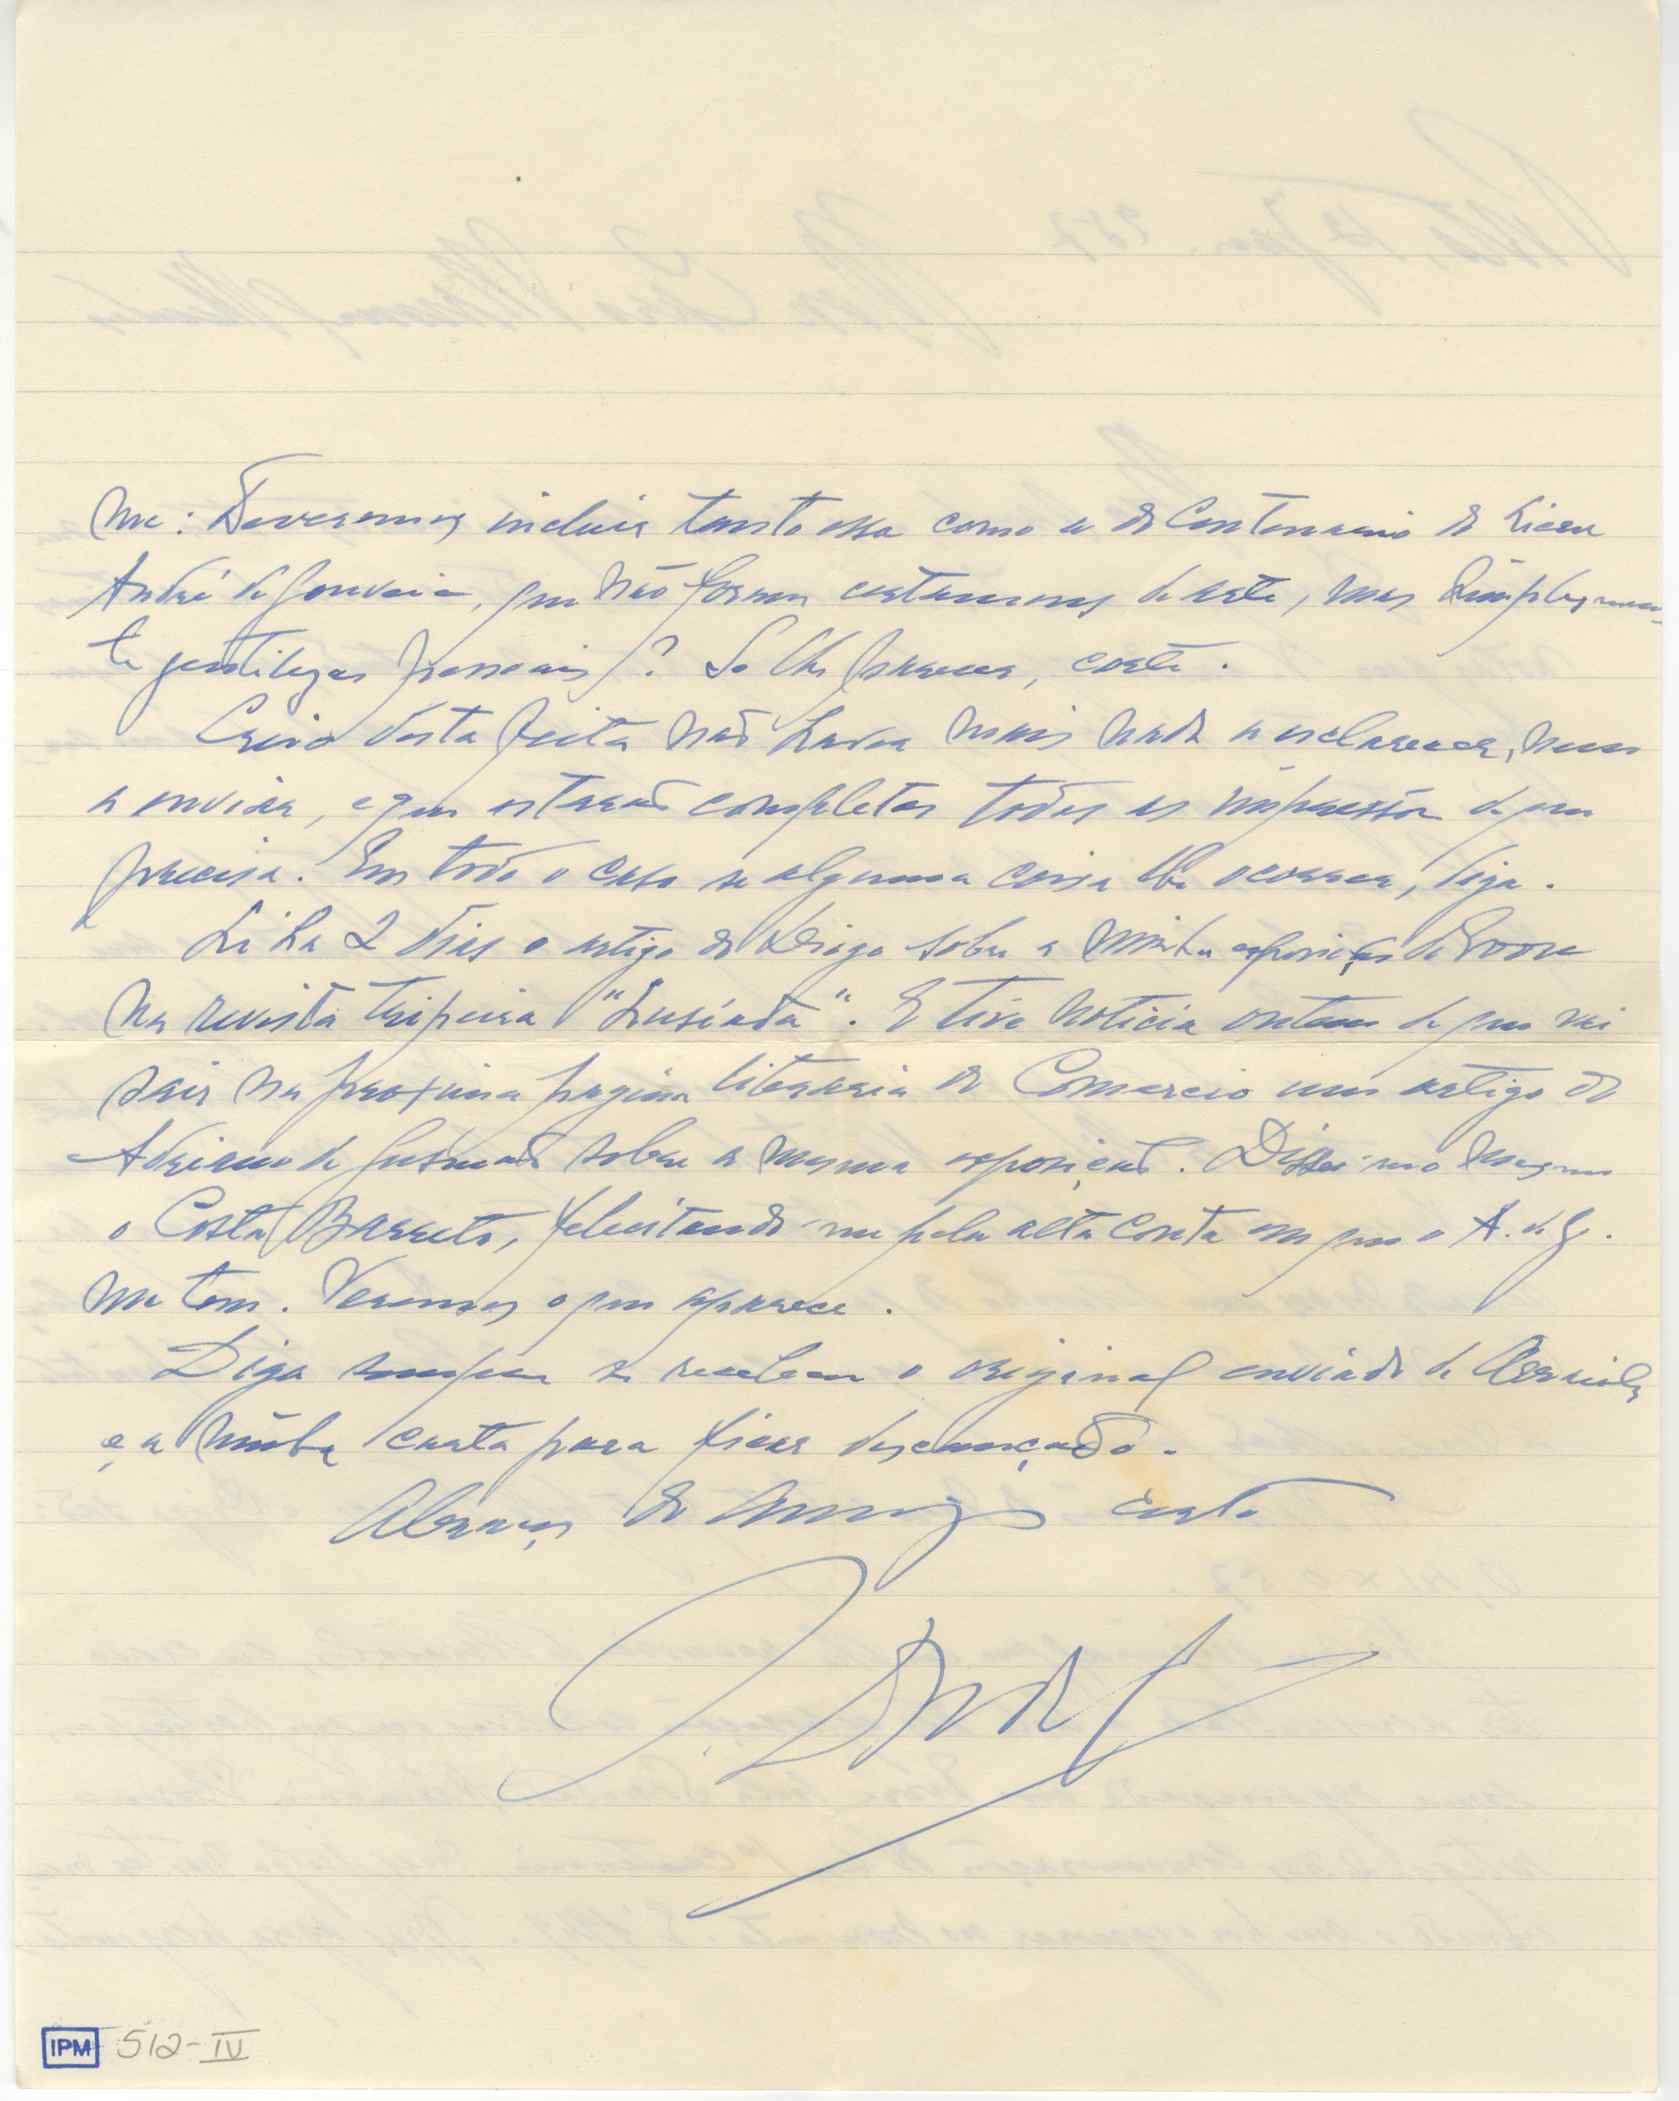 me: Deveremos incluir tanto essa como a do Centenario do Liceu
André de Gouveia, que não foram certamens de arte, mas simplesmen-
te gentilezas pessoais? Se lhe parecer, corte.
Creio desta feita não haver mais nada a esclarecer, nem
a enviar, e que estarão completos todos os de que
precisa. Em todo o caso se alguma coisa lhe ocorrer, diga.
Li ha 2 dias o artigo do Diogo sobre a minha exposição de Evora
na revista tripeira "Lusíada". E tive noticia ontem de que vai
sair na proxima pagina literaria do Comercio um artigo do
Adriano de Gusmão sobre a mesma exposição. Disse-mo mesmo
o Costa Barreto, felicitando-me pela alta conta em que o A. de G.
me tem. Veremos o que aparece.
Diga sempre se recebeu o original enviado de
e a minha carta para ficar descançado.
Abraços do amigo certo
IPM 512-IV